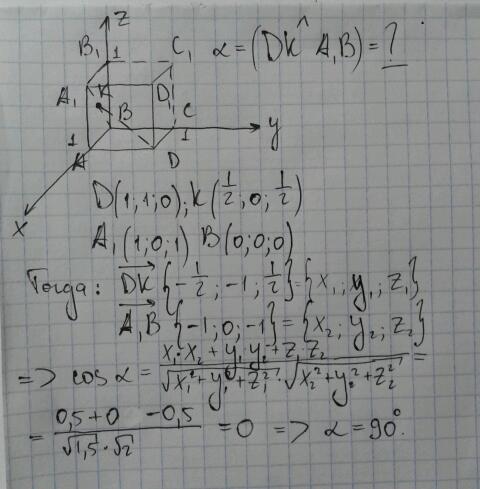 Z
B₁ 1 C₁ α = (DK^A₁B) = ?
A₁ K D₁
B C
1 1 y
A D
x
D(1;1;0); K(1/2; 0; 1/2)
A₁(1;0;1) B(0;0;0)
Тогда: DK {-1/2; -1; 1/2} = {x₁; y₁; z₁}
A₁B {-1; 0; -1} = {x₂; y₂; z₂}
=> cos α = (x₁·x₂ + y₁y₂ + z₁z₂)/(√(x₁²+y₁²+z₁²) · √(x₂²+y₂²+z₂²)) =
= (0,5+0 -0,5)/(√1,5·√2) = 0 => α = 90°.